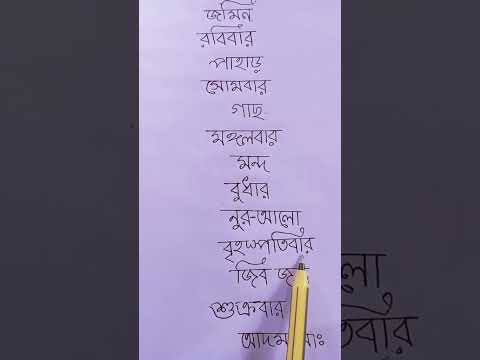 জমিন
রবিবার
পাহাড়
সোমবার
গাছ
মঙ্গলবার
মন্দ
বুধার
নুর-আলো
বৃহস্পতিবার
জিব
শুক্রবার
আদম